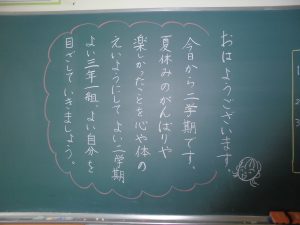 おはようございます
今日から二学期です。
夏休みのがんばりや
楽しかったことを心や体の
えいようにして よい二学期
よい三年一組、よい自分を
目ざしていきましょう。